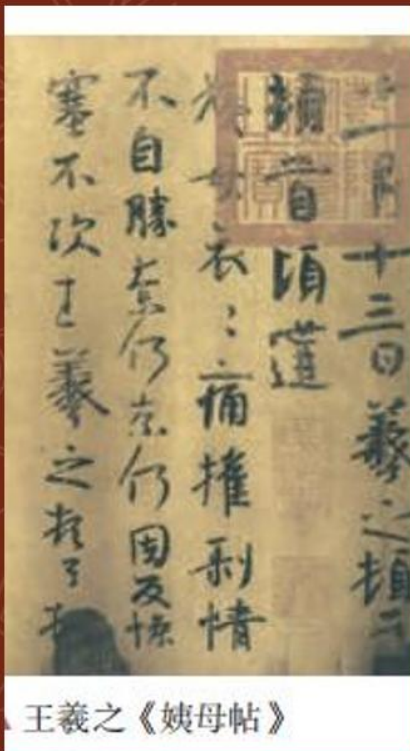 十一月十三日羲之頓首
頓首頃遘
姨母哀〻痛摧剥情
不自勝奈何奈何因反慘
塞不次王羲之頓首頓首
王羲之《姨母帖》